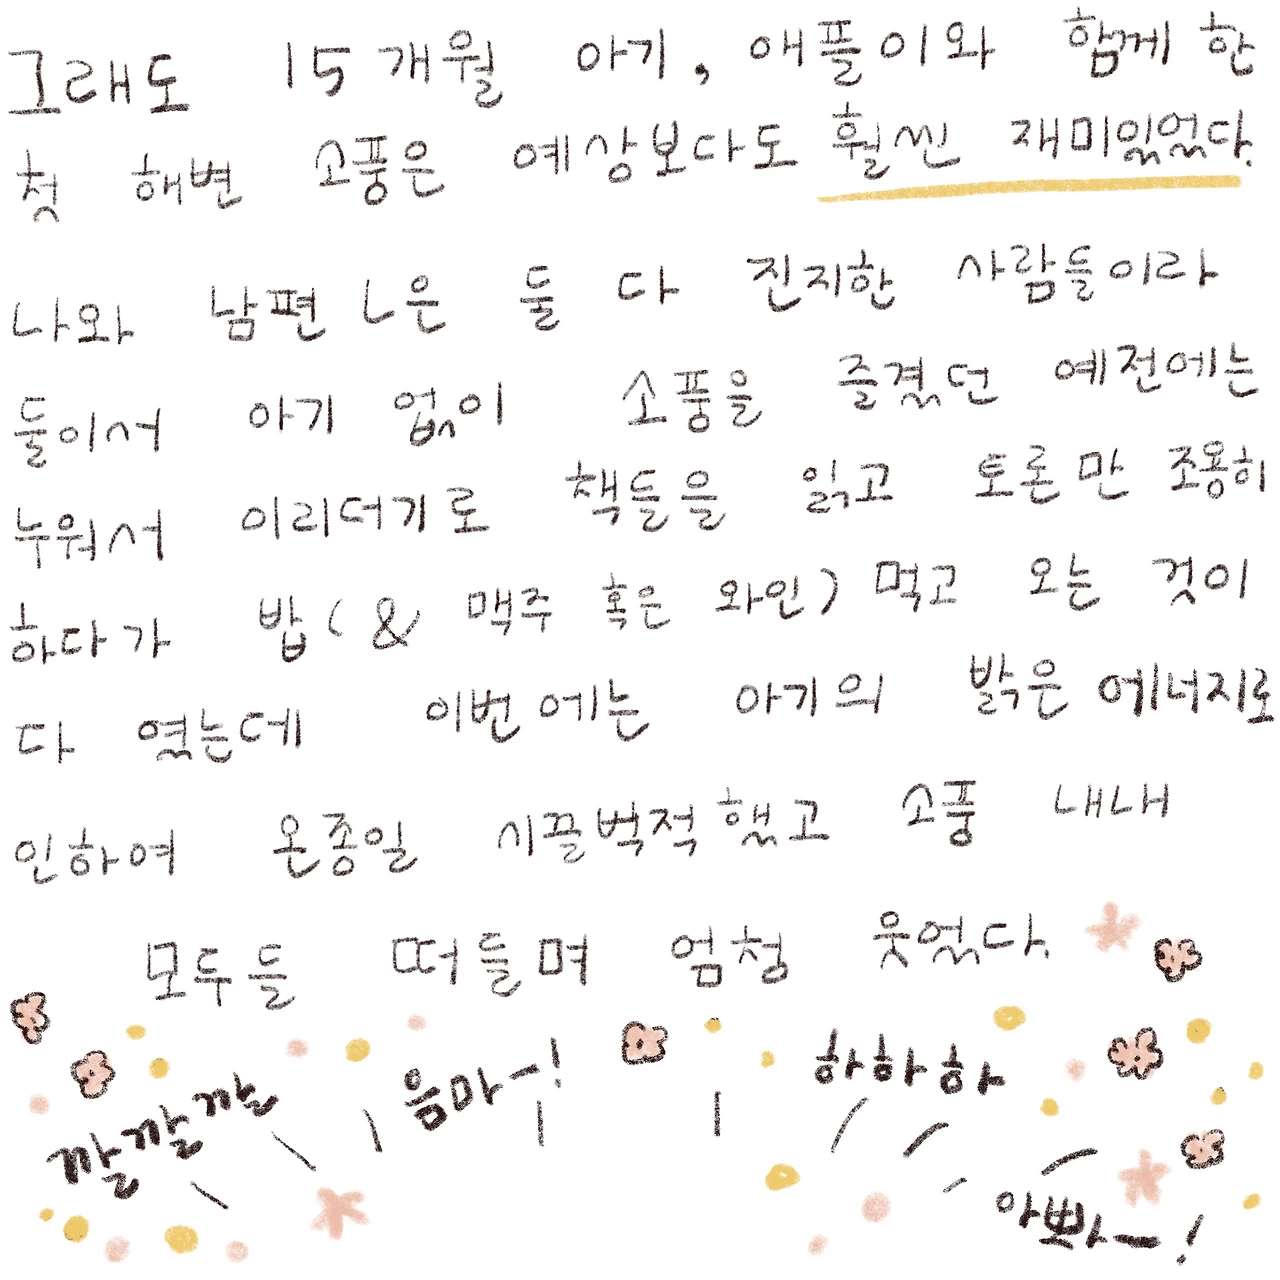 그래도 15개월 아기, 애플이와 함께 한
첫 해변 소풍은 예상보다도 훨씬 재미있었다.
나와 남편 L은 둘 다 진지한 사람들이라
둘이서 아기 없이 소풍을 즐겼던 예전에는
누워서 이리더기로 책들을 읽고 토론만 조용히
하다가 밥(& 맥주 혹은 와인) 먹고 오는 것이
다 였는데 이번에는 아기의 밝은 에너지로
인하여 온종일 시끌벅적했고 소풍 내내
모두들 떠들며 엄청 웃었다.
깔깔깔
음마-!
하하하
아빠-!